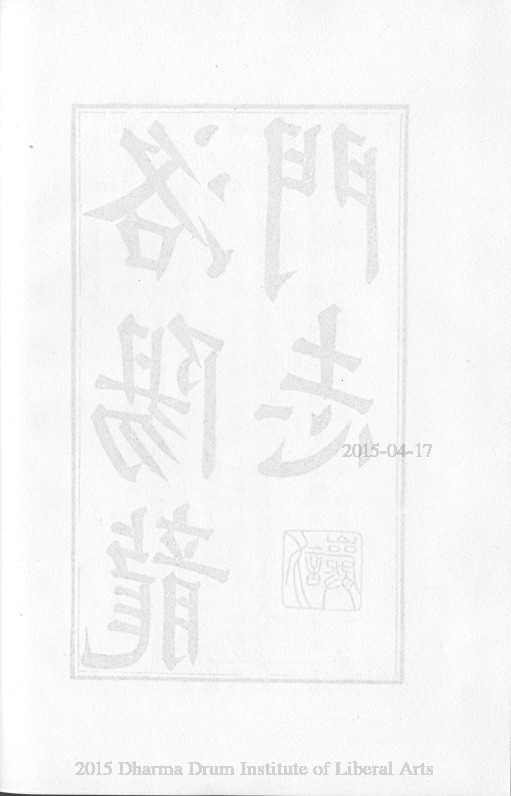 洛陽龍
門志
2015-04-17
2015 Dharma Drum Institute of Liberal Arts